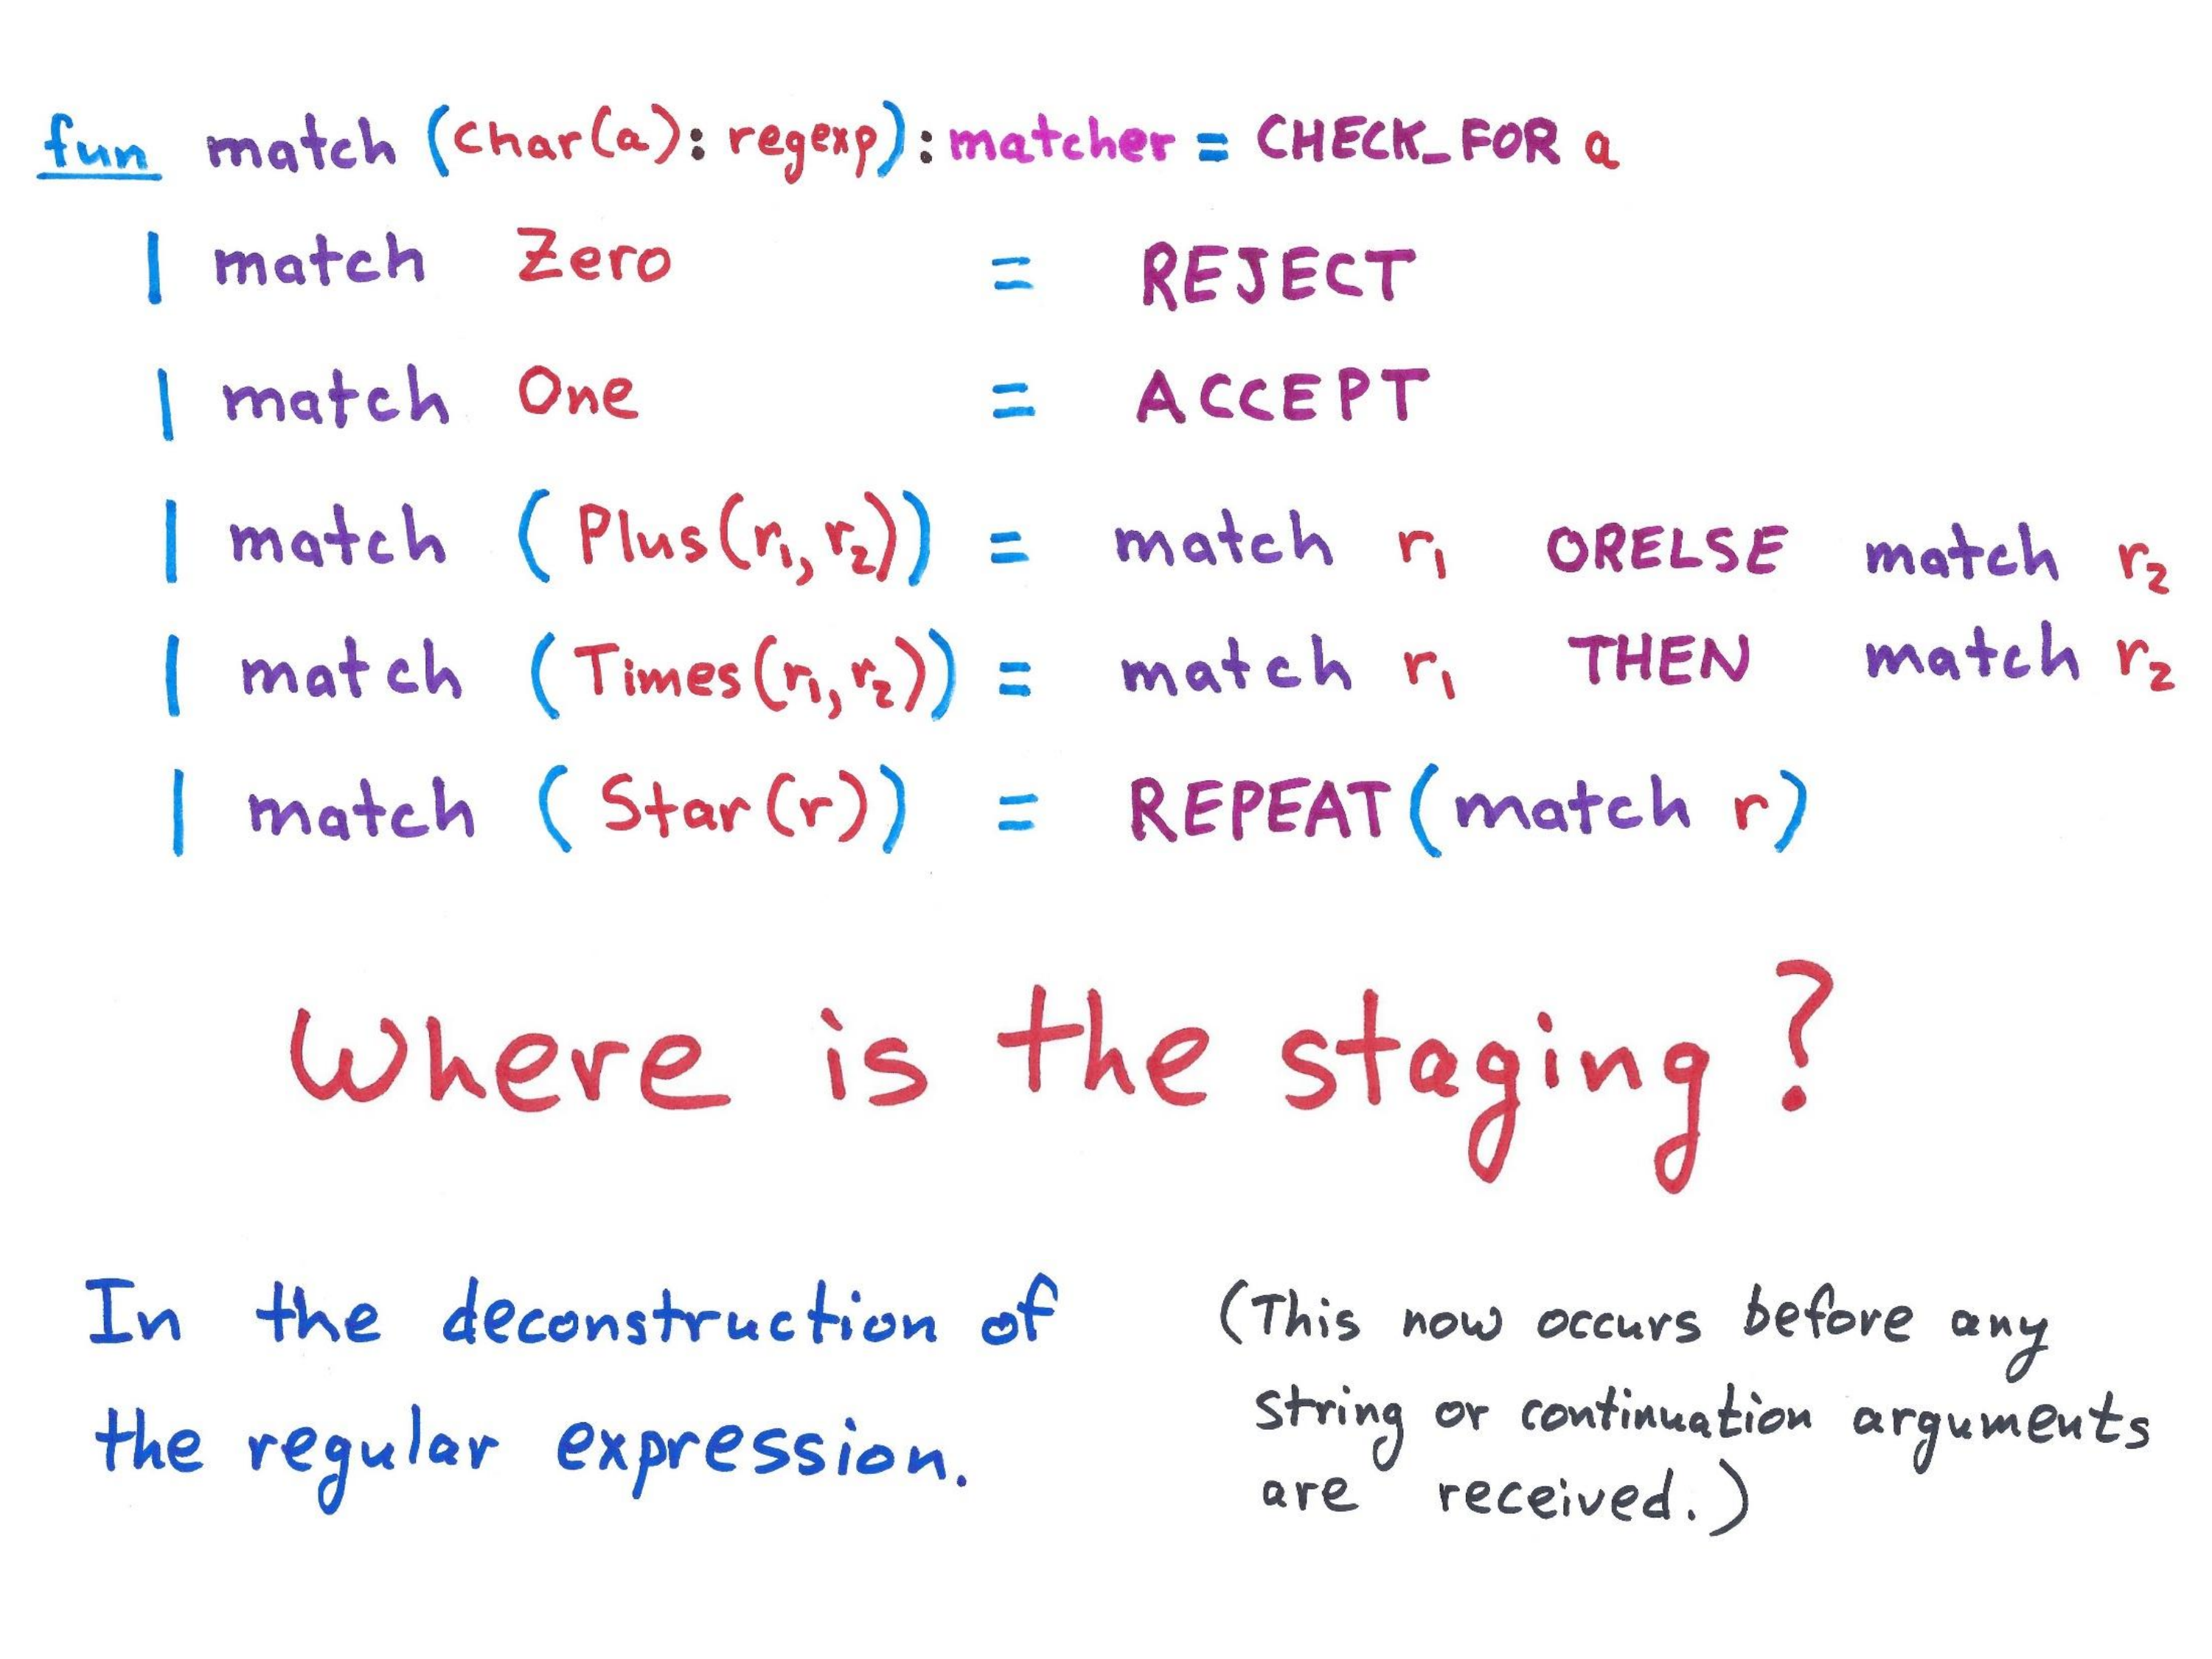 fun match (char(a): regexp): matcher = CHECK_FOR a
| match Zero = REJECT
| match One = ACCEPT
| match (Plus(r₁, r₂)) = match r₁ ORELSE match r₂
| match (Times(r₁, r₂)) = match r₁ THEN match r₂
| match (Star(r)) = REPEAT(match r)
Where is the staging?
In the deconstruction of
the regular expression.
(This now occurs before any
string or continuation arguments
are received.)